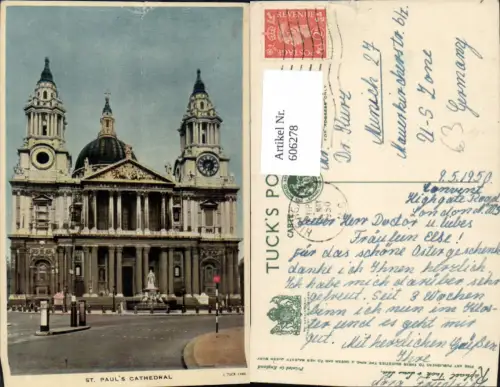 ST. PAUL'S CATHEDRAL
REVENUE
Artikel Nr.
606278
Dr Kurz
Munich 27
Mauerkircherstr. b/2
U-S Zone
Germany
63
TUCK'S PO
CARTE
9.5.1950.
Convent
Highgate Road
London N.W.
Lieber Herr Doctor u. liebes
Fräulein Else!
Für das schöne Ostergeschenk
danke ich Ihnen herzlich.
Ich habe mich darüber sehr
gefreut. Seit 3 Wochen
bin ich nun im Klos-
ter und es geht mir
gut. Mit herzlichen Grüßen
Ihre
Printed in England